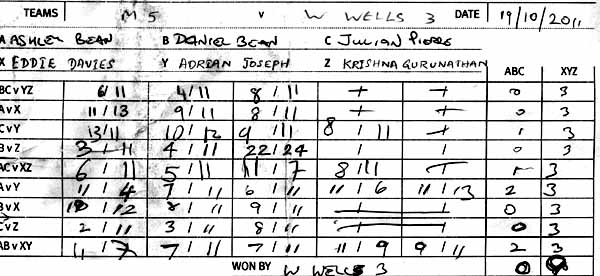 TEAMS M 5 V W WELLS 3 DATE 19/10/2011
A ASHLEY BEAN B DANIEL BEAN C JULIAN PIERRE
X EDDIE DAVIES Y ADRIAN JOSEPH Z KRISHNA GURUNATHAN
ABC XYZ
BC v YZ 6/11 4/11 8/11 0 3
A v X 11/13 9/11 8/11 0 3
C v Y 13/11 10/12 9/11 8/11 1 3
B v Z 3/11 4/11 22/24 0 3
AC v XZ 6/11 5/11 11/7 8/11 1 3
A v Y 11/4 7/11 6/11 11/6 11/13 2 3
B v X 10/12 8/11 9/11 0 3
C v Z 2/11 3/11 8/11 0 3
AB v XY 11/7 7/11 7/11 11/9 9/11 2 3
WON BY W WELLS 3 0 9